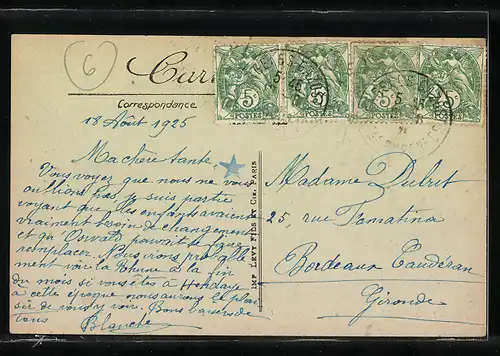 6
Car
Correspondance
5 5 5 5
POSTES POSTES POSTES POSTES
18 Août 1925
Ma chère tante,
Vous voyez que nous ne vous
oublions pas. Je suis partie
voyant que les enfants avaient
vraiment besoin de changement
et qu'Oswald pouvait se faire
remplacer. Nous irons probable
ment voir la Rhune à la fin
du mois si vous êtes à Hendaye
à cette époque nous aurons le plai
sir de vous voir. Bons baisers de
tous
Blanche
IMP. LÉVY FILS ET CIE, PARIS
Madame Dubrut
25, rue
Bordeaux Caudéran
Gironde